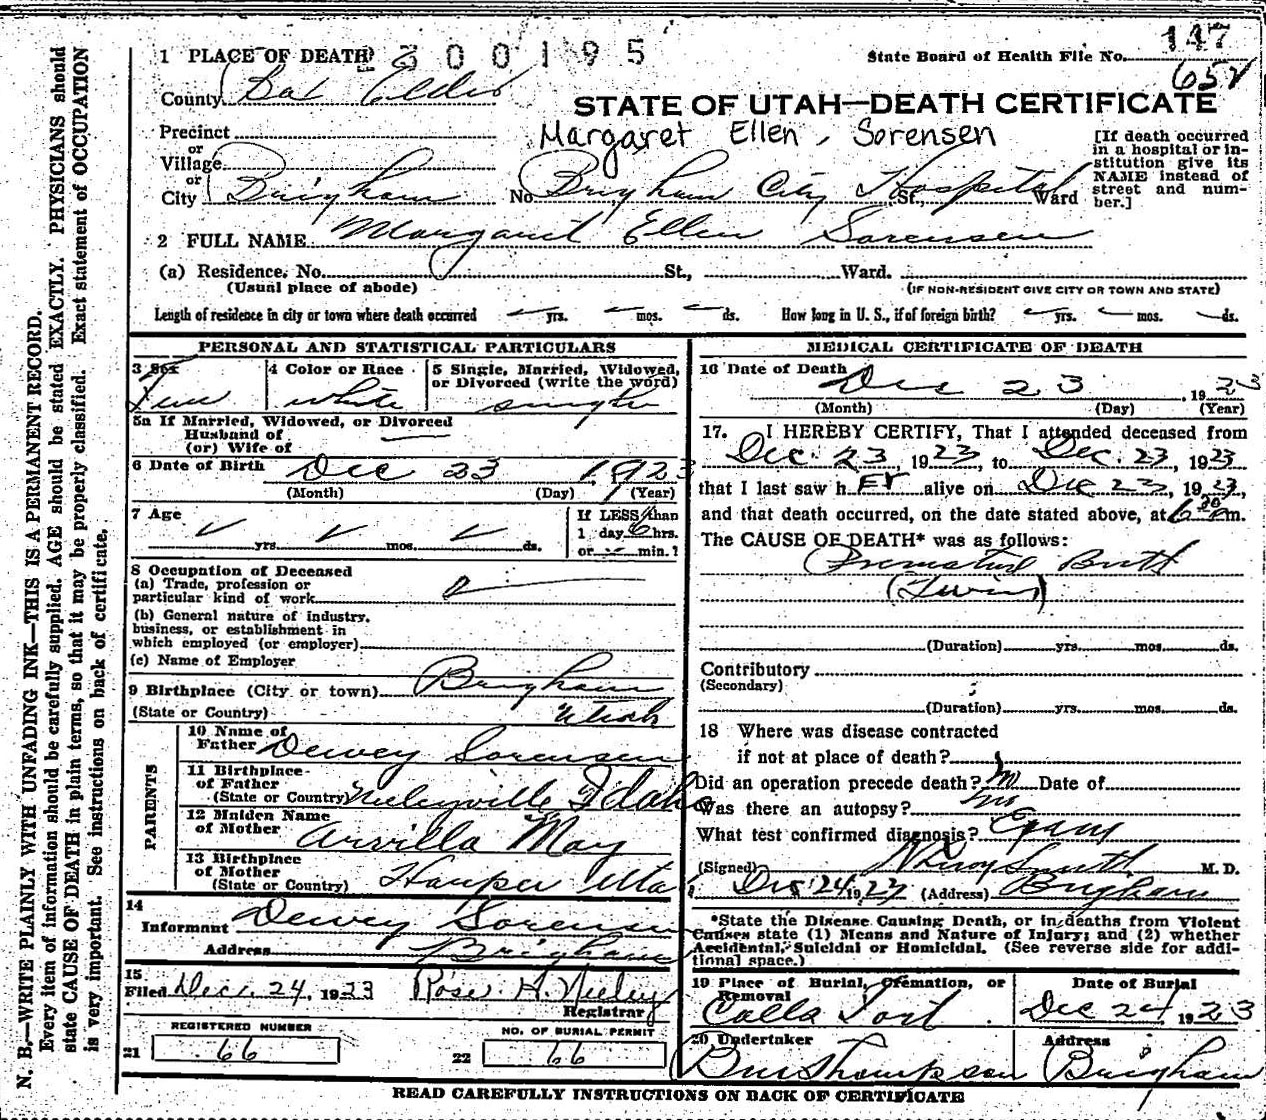 N. B.—WRITE PLAINLY WITH UNFADING INK—THIS IS A PERMANENT RECORD.
Every item of information should be carefully supplied. AGE should be stated EXACTLY. PHYSICIANS should
state CAUSE OF DEATH in plain terms, so that it may be properly classified. Exact statement of OCCUPATION
is very important. See instructions on back of certificate.
1 PLACE OF DEATH 2300195
State Board of Health File No. 147
652
County Box Elder
STATE OF UTAH—DEATH CERTIFICATE
Margaret Ellen Sorensen
Precinct
or
Village
or
City Brigham No. Brigham City Hospital St., Ward
[If death occurred
in a hospital or in-
stitution give its
NAME instead of
street and num-
ber.]
2 FULL NAME Margaret Ellen Sorensen
(a) Residence. No. St., Ward.
(Usual place of abode) (IF NON-RESIDENT GIVE CITY OR TOWN AND STATE)
Length of residence in city or town where death occurred yrs. mos. ds. How long in U. S., if of foreign birth? yrs. mos. ds.
PERSONAL AND STATISTICAL PARTICULARS
3 Sex Fem
4 Color or Race white
5 Single, Married, Widowed,
or Divorced (write the word)
single
5a If Married, Widowed, or Divorced
Husband of
(or) Wife of
6 Date of Birth Dec 23 1923
(Month) (Day) (Year)
7 Age
yrs. mos. ds.
If LESS than
1 day 6 hrs.
or min.?
8 Occupation of Deceased
(a) Trade, profession or
particular kind of work
(b) General nature of industry,
business, or establishment in
which employed (or employer)
(c) Name of Employer
9 Birthplace (City or town) Brigham
(State or Country) Utah
PARENTS
10 Name of
Father Dewey Sorensen
11 Birthplace
of Father
(State or Country) Neeleyville Idaho
12 Maiden Name
of Mother Arvilla May
13 Birthplace
of Mother
(State or Country) Harper Utah
14
Informant Dewey Sorensen
Address Brigham
15
Filed Dec. 24, 1923 Rose H. Neeley
Registrar
REGISTERED NUMBER
21 66
NO. OF BURIAL PERMIT
22 66
MEDICAL CERTIFICATE OF DEATH
16 Date of Death Dec 23, 1923
(Month) (Day) (Year)
17. I HEREBY CERTIFY, That I attended deceased from
Dec. 23 1923, to Dec. 23, 1923
that I last saw her alive on Dec 23, 1923,
and that death occurred, on the date stated above, at 6 30 m.
The CAUSE OF DEATH* was as follows:
Premature Birth
(Twins)
(Duration) yrs. mos. ds.
Contributory
(Secondary)
(Duration) yrs. mos. ds.
18 Where was disease contracted
if not at place of death?
Did an operation precede death? no Date of
Was there an autopsy? no
What test confirmed diagnosis? Exam
(Signed) Smith M. D.
Dec 24 1923 (Address) Brigham
*State the Disease Causing Death, or in deaths from Violent
Causes state (1) Means and Nature of Injury; and (2) whether
Accidental, Suicidal or Homicidal. (See reverse side for addi-
tional space.)
19 Place of Burial, Cremation, or
Removal
Calls Fort
Date of Burial
Dec 24 1923
20 Undertaker
Thompson
Address
Brigham
READ CAREFULLY INSTRUCTIONS ON BACK OF CERTIFICATE